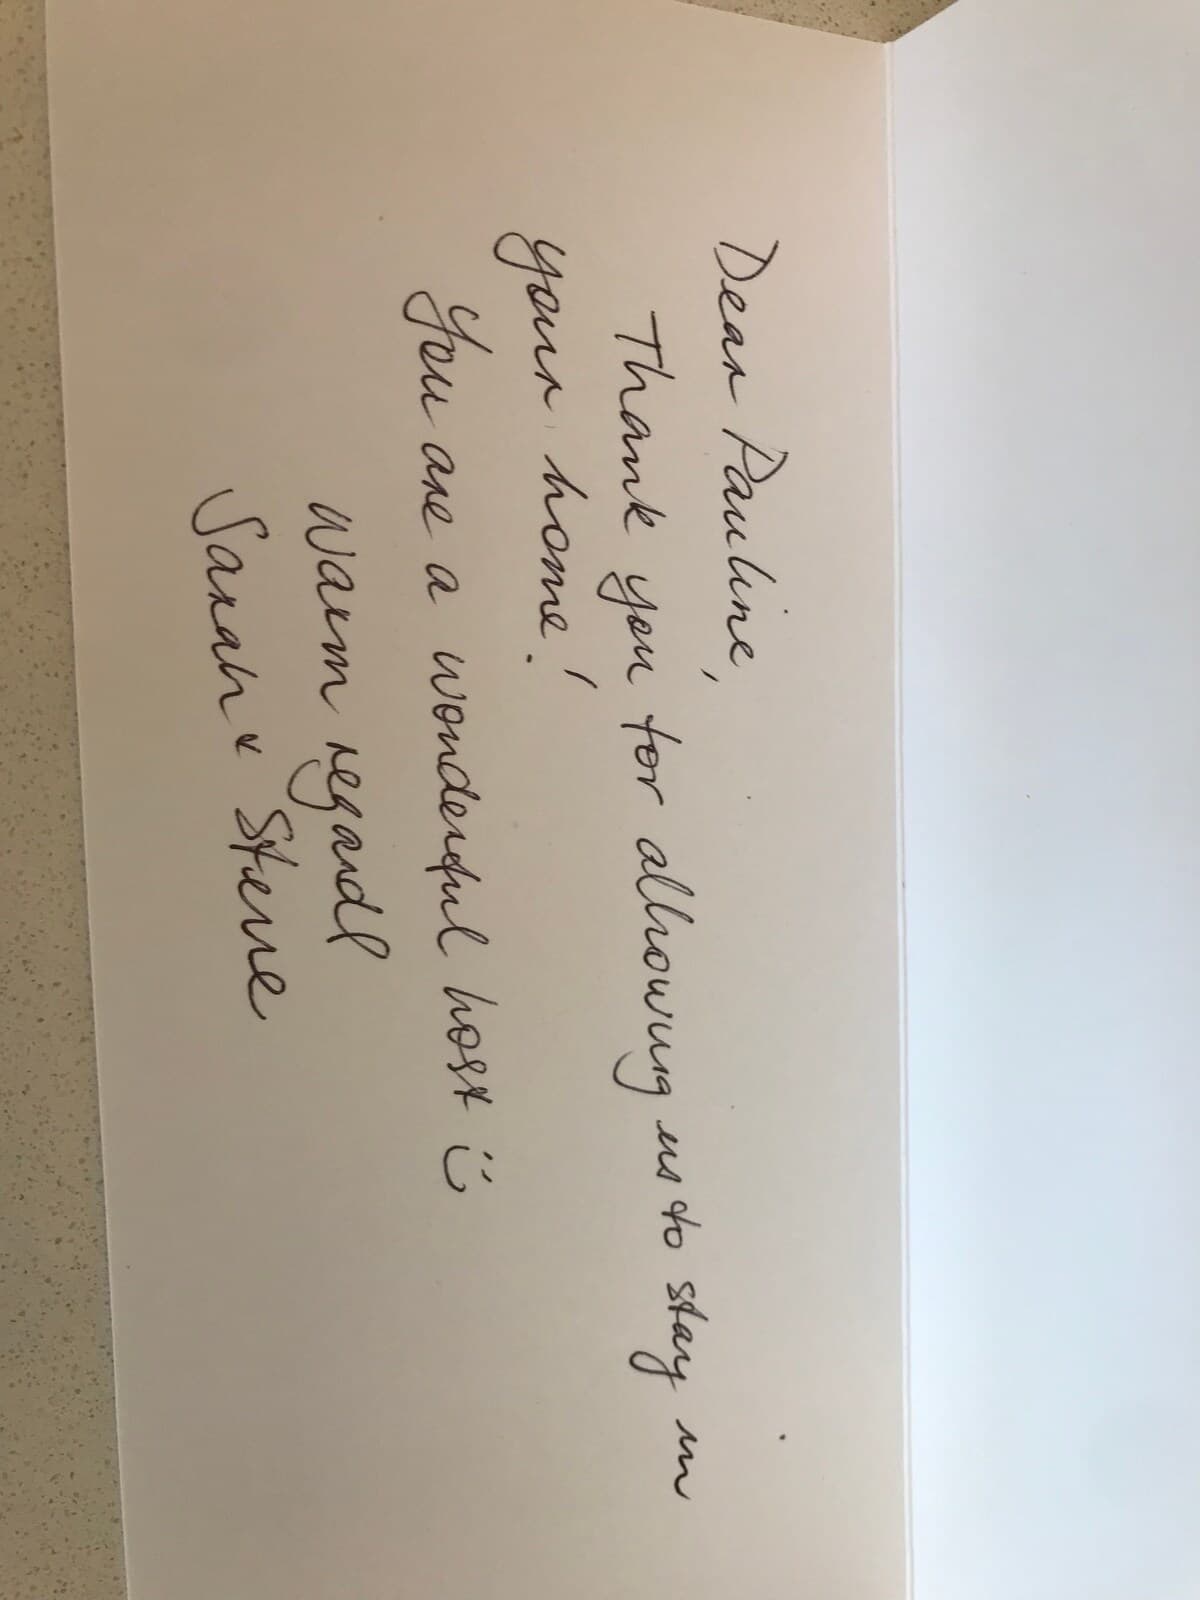 Dear Pauline,
Thank you for allowing us to stay in
your home!
You are a wonderful host :)
Warm regards
Sarah & Steve